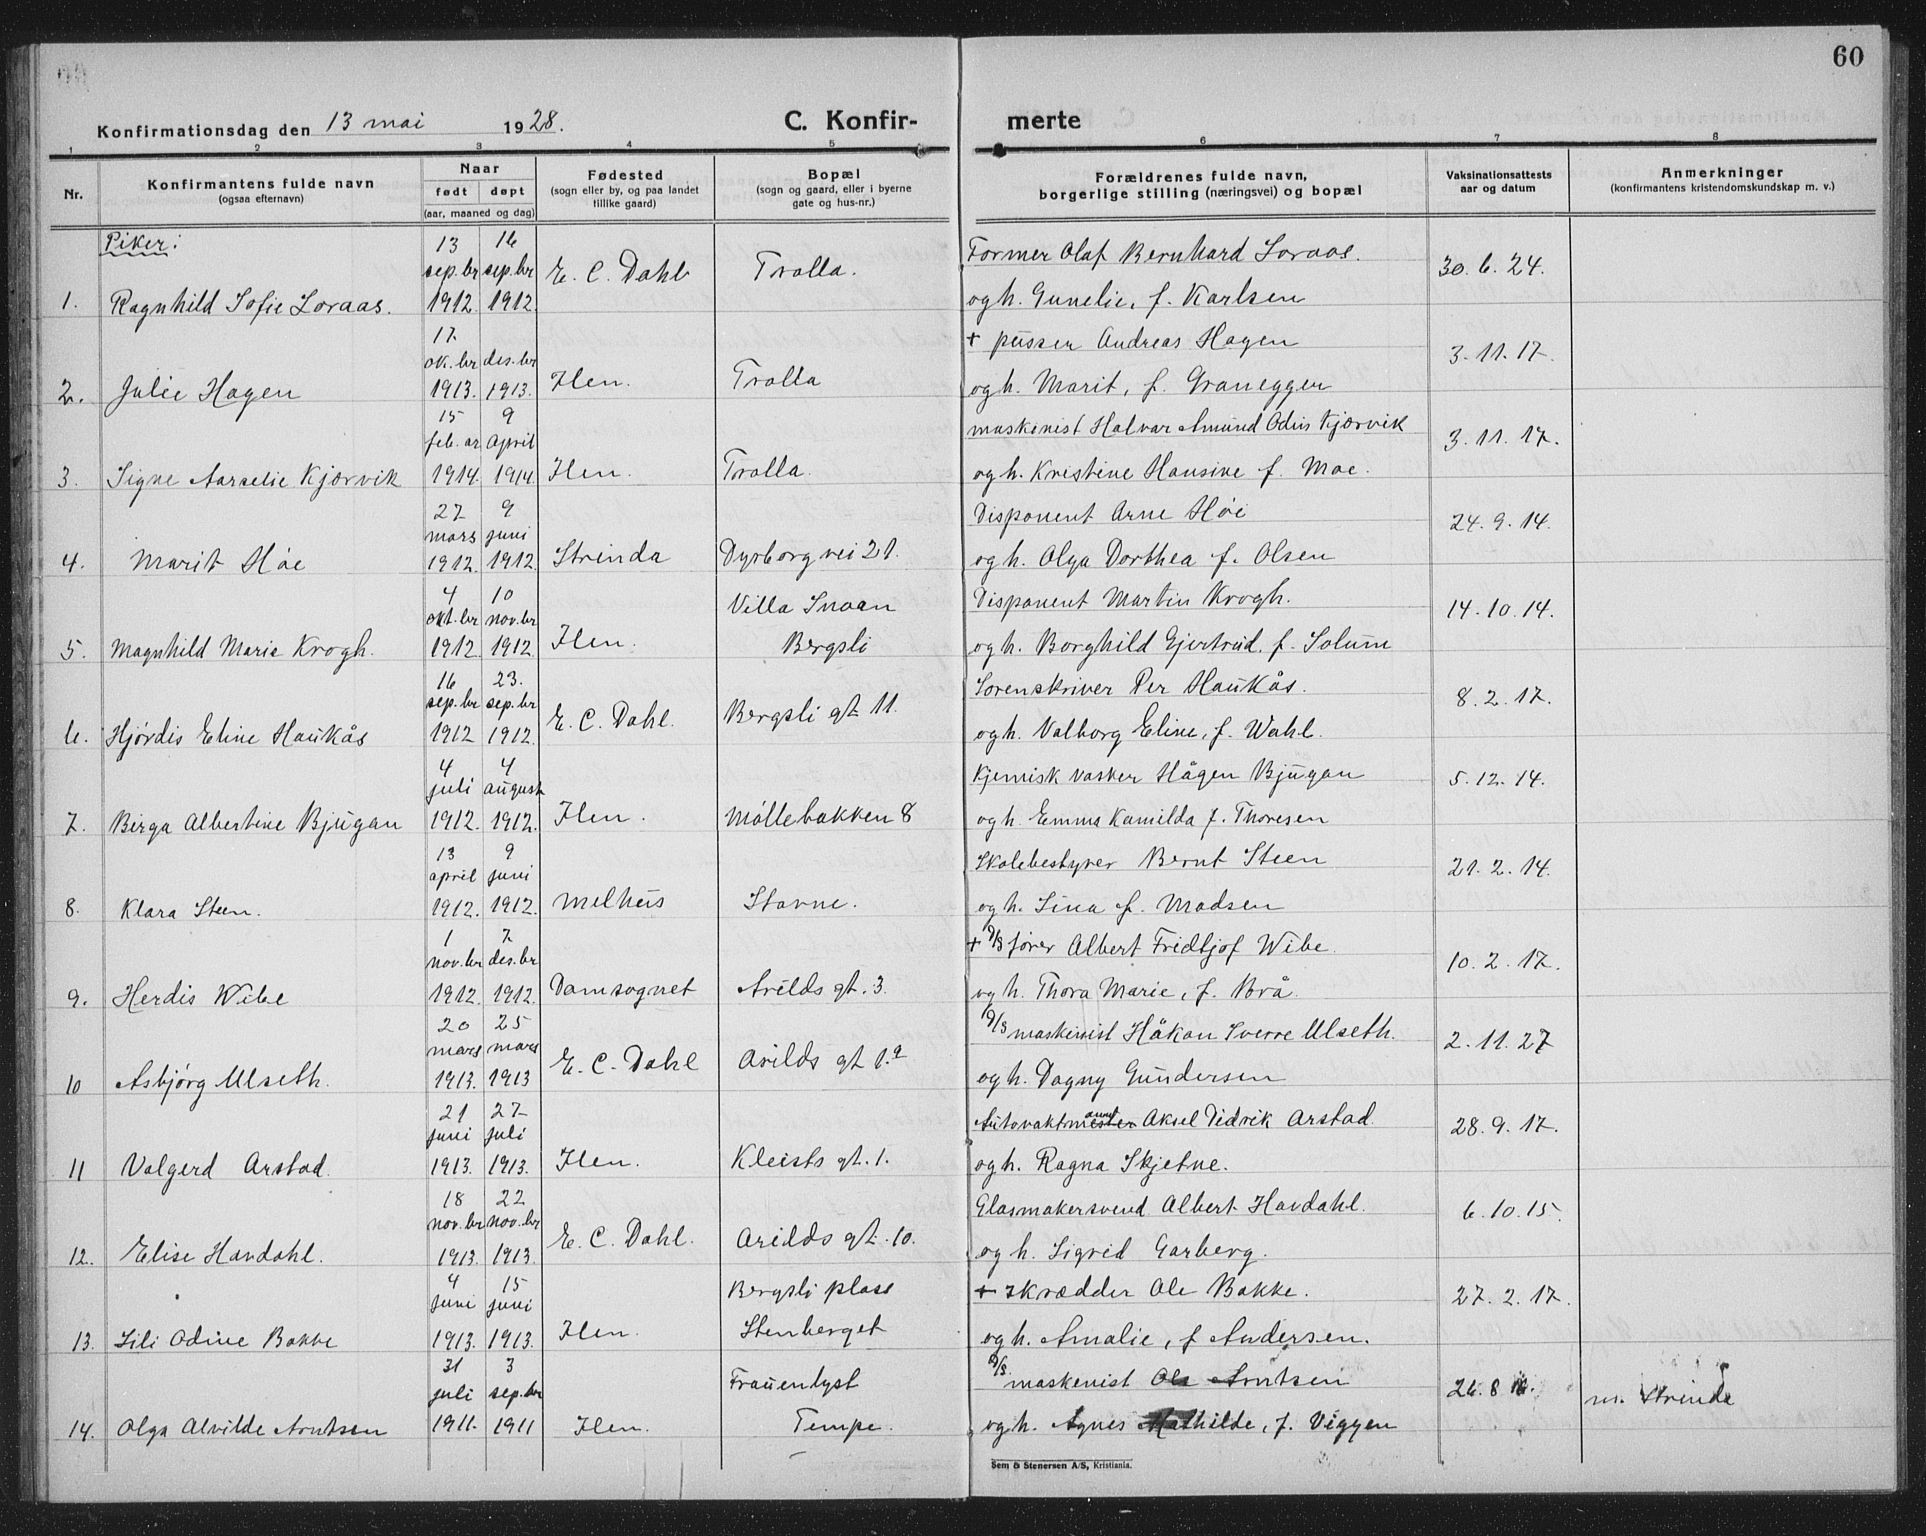 60
Konfirmationsdag den 13 mai 1928.
C. Konfirmerte
1 2 3 4 5 6 7 8
Nr.
Konfirmantens fulde navn
(ogsaa efternavn)
Naar
født døpt
(aar, maaned og dag)
Fødested
(sogn eller by, og paa landet
tillike gaard)
Bopæl
(sogn og gaard, eller i byerne
gate og hus-nr.)
Forældrenes fulde navn,
borgerlige stilling (næringsvei) og bopæl
Vaksinationsattests
aar og datum
Anmerkninger
(konfirmantens kristendomskundskap m. v.)
Piker:
13 16
sep.br sep.br E. C. Dahls Trolla. Former Olaf Bernhard Loraas. 30.6.24.
1. Ragnhild Sofie Loraas. 1912. 1912. og h. Gunelie, f. Karlsen
17.
ok.br des.br + pusser Andreas Hagen 3.11.17.
2. Julie Hagen 1913. 1913. Ilen. Trolla og h. Marit, f. Graneggen
15 9
feb.ar April maskinist Halvar Amund Odin Kjørvik 3.11.17.
3. Signe Aarselie Kjørvik 1914. 1914. Ilen. Trolla. og h. Kristine Hansine f. Moe.
27 9
mars juni Disponent Arne Høe 24.9.14.
4. Marit Høe 1912. 1912. Strinda Dyrborg vei 21. og h. Olga Dorthea f. Olsen
4 10
okt.br nov.br Villa Snoan Disponent Martin Krogh. 14.10.14.
5. Magnhild Marie Krogh. 1912. 1912. Ilen. Bergsli og h. Borghild Gjertrud, f. Solum
16 23.
sep.br sep.br E. C. Dahl. Bergsli gt 11. Sorenskriver Per Haukås. 8.2.17.
6. Hjørdis Eline Haukås 1912 1912. og h. Valborg Eline, f. Wahl.
4 4
juli august Kjemisk vasker Hågen Bjugan 5.12.14.
7. Birga Albertine Bjugan 1912. 1912. Ilen. Møllebakken 8 og h. Emma Kamilda f. Thoresen
13 9
april juni Skolebestyrer Bernt Steen 21.2.14.
8. Klara Steen. 1912. 1912. Melhus Stavne. og h. Sina f. Madsen
1 7
nov.br des.br + D/S fører Albert Fridtjof Wibe. 10.2.17.
9. Herdis Wibe 1912. 1912. Domsognet Arilds gt. 3. og h. Thora Marie, f. Brå.
20 25
mars mars D/S maskinist Håkon Sverre Ulseth. 2.11.27
10 Asbjørg Ulseth. 1913. 1913 E. C. Dahl Arilds gt 1.a og h. Dagny Gundersen
21 27
juni juli Autovaktmester Aksel Didrik Arstad. 28.9.17.
11 Valgerd Arstad. 1913. 1913. Ilen. Kleists gt. 1. og h. Ragna Skjetne.
18 22
nov.br nov.br Glasmakersvend Albert Havdahl. 6.10.15.
12. Elise Havdahl. 1913. 1913. E. C. Dahl. Arilds gt. 10. og h. Sigrid Garberg.
4 15
juni juni Bergsli plass + skrædder Ole Bakke. 27.2.17.
13. Lili Odine Bakke 1913. 1913. Ilen. Stenberget og h. Amalie, f Andersen.
31 3
juli sep.br Frauenlyst D/S. maskinist Ole Arntsen 26.8. m. Strinda
14. Olga Alvilde Arntsen 1911. 1911 Ilen. Tempe. og h. Agnes Mathilde, f. Viggen
Sem & Stenersen A/S, Kristiania.